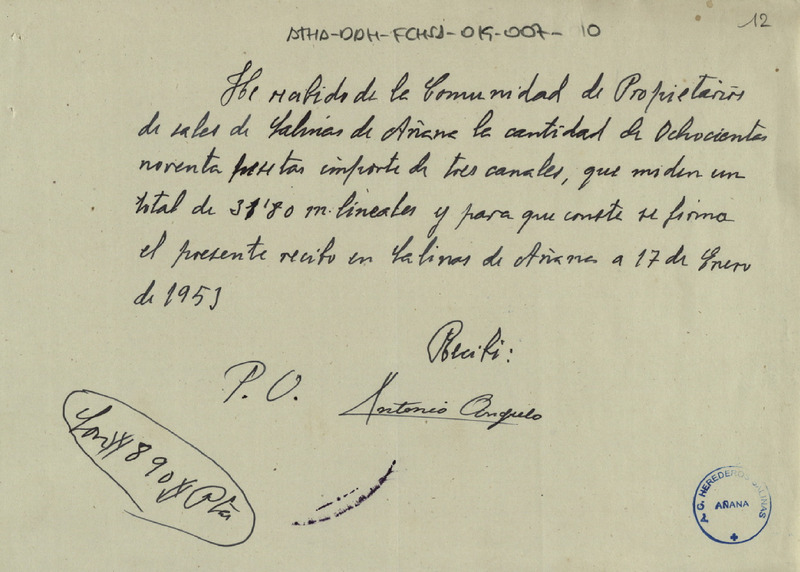 ATHA-DAH-FCHSA-019-007-10
12
He recibido de la Comunidad de Propietarios
de sales de Salinas de Añana la cantidad de Ochocientas
noventa pesetas importe de tres canales, que miden un
total de 31'80 m. lineales y para que conste se firma
el presente recibo en Salinas de Añana a 17 de Enero
de 1953
Recibi:
P. O.
Antonio Angulo
Son # 890 # Pta
A. G. HEREDEROS SALINAS
AÑANA